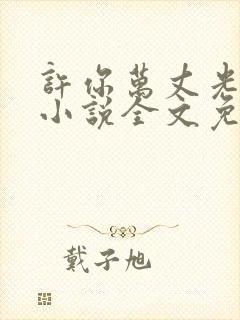 許你萬丈光
小說全文免
戴子旭